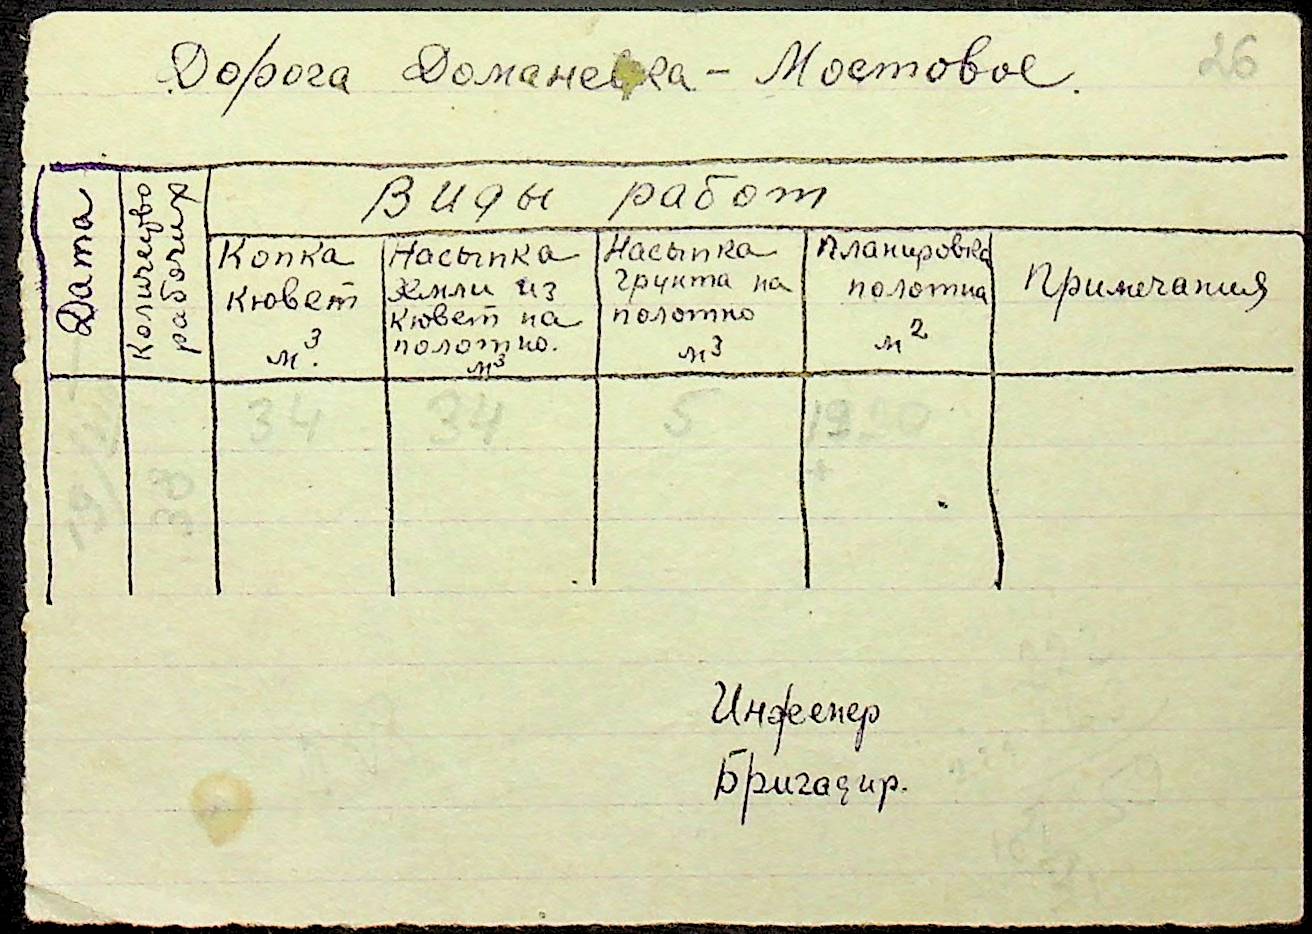 26
Дорога Доманевка - Мостовое.
Дата
Количество
рабочих
Виды работ
Копка
кювет
м³.
Насыпка
земли из
кювет на
полотно.
м³
Насыпка
грунта на
полотно
м³
Планировка
полотна
м²
Примечания
19/
38
34
34
5
Инженер
Бригадир.